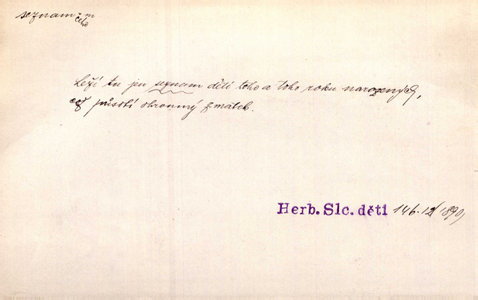 seznam
Leží tu jen seznam dětí toho a toho roku narozených,
což přísští skromný zmatek.
Herb. Slc. děti 146-12/1890,